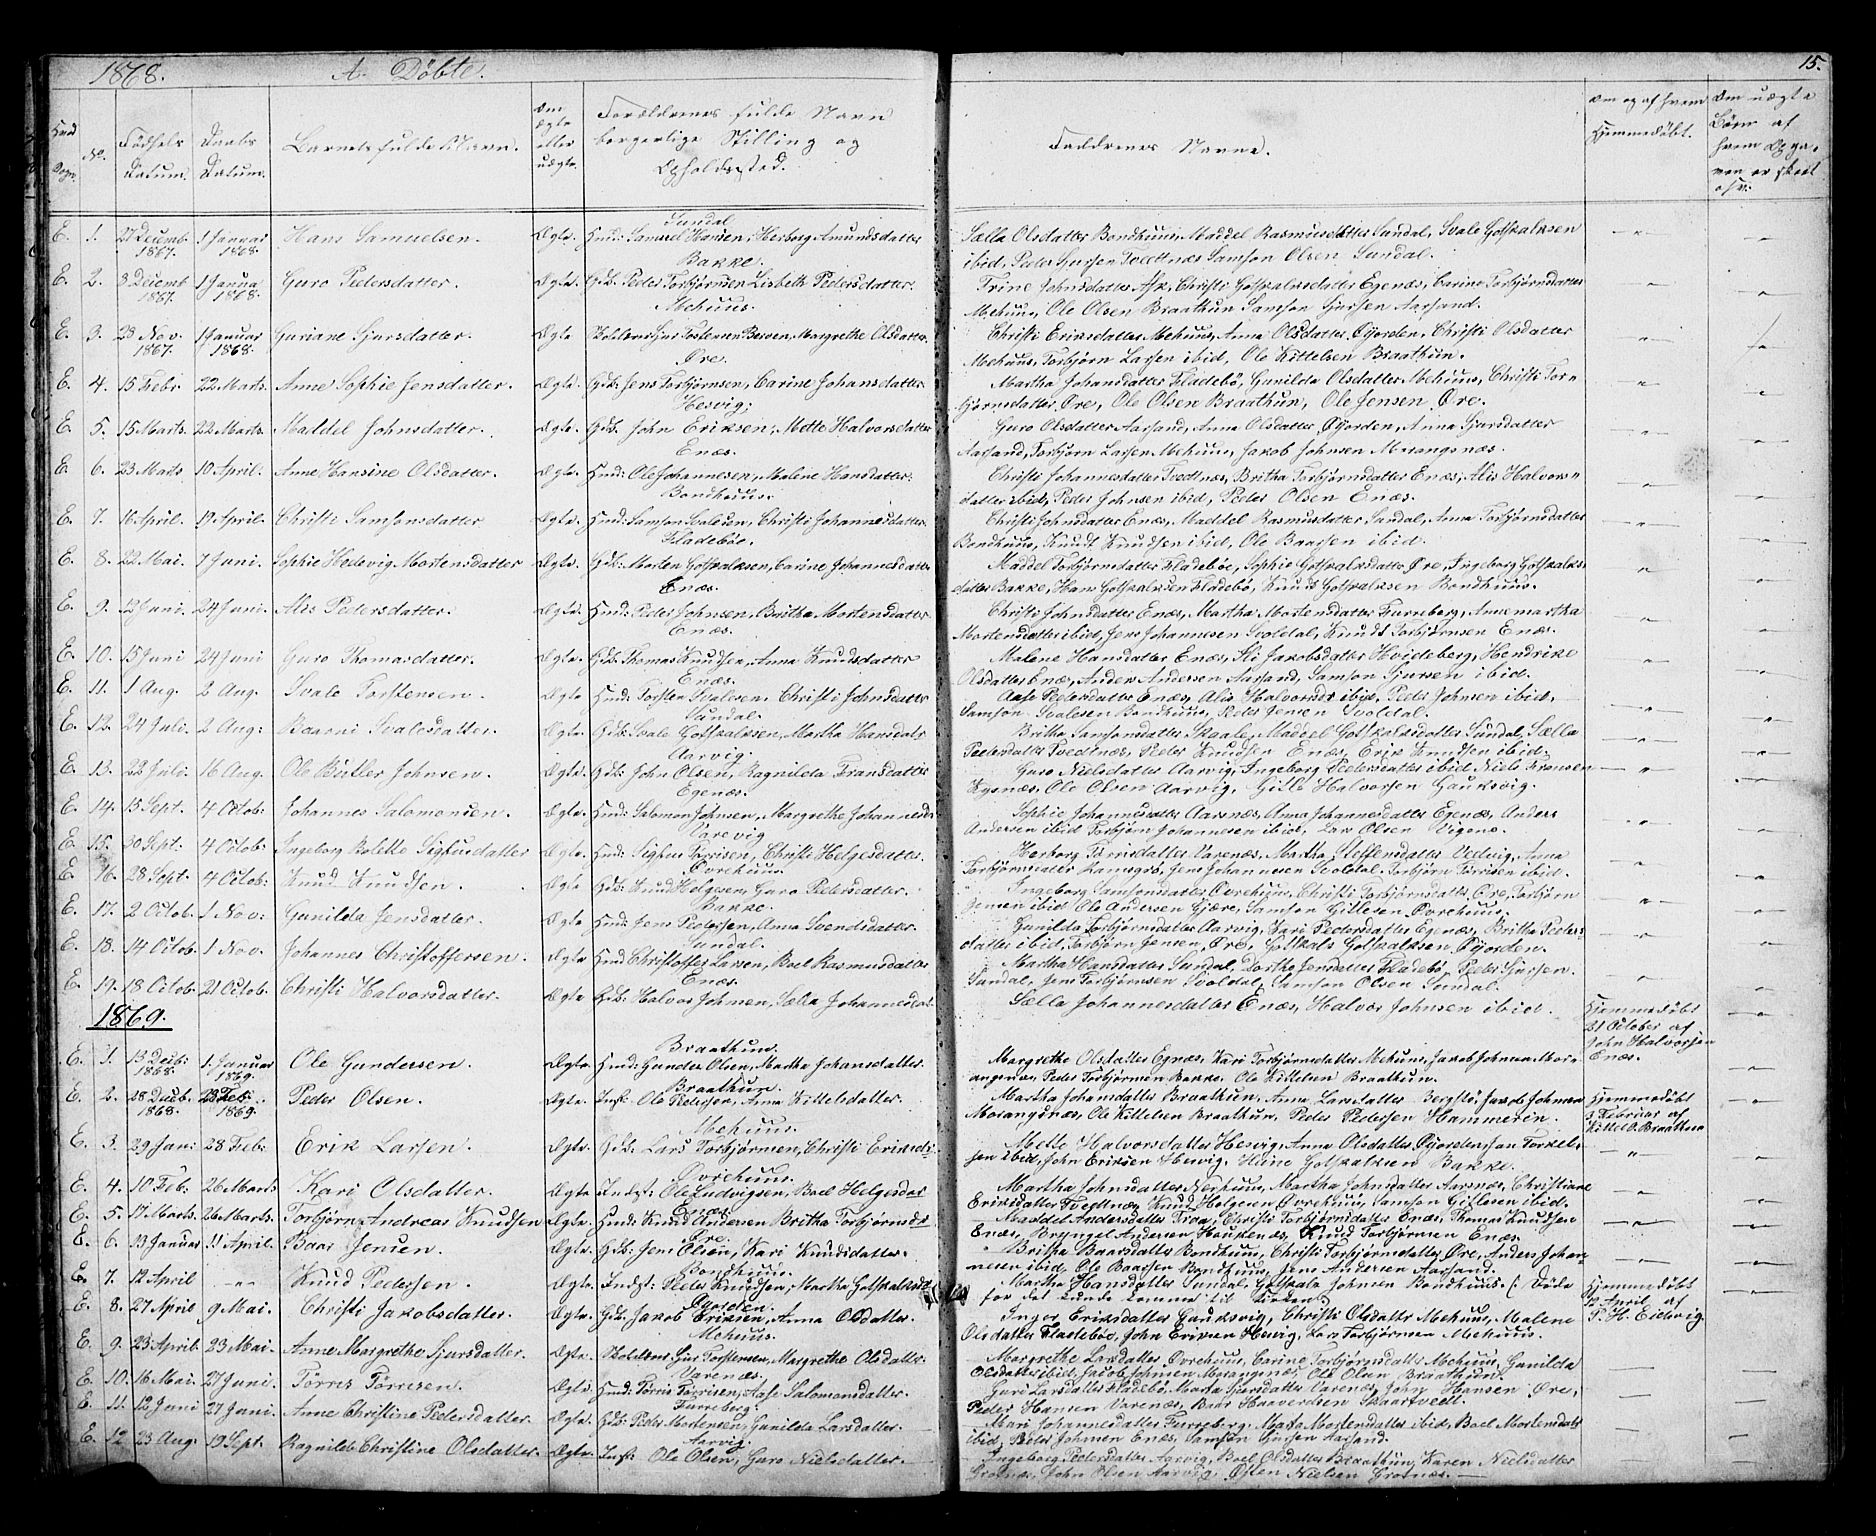 1868. A. Döbte. 15.
No. Födsels Datum. Daabs Datum. Barnets fulde Navn. Om ægte eller uægte. Forældrenes fulde Navn borgerlige Stilling og Opholdssted. Faddrenes Navne. Om og af hvem Hjemmedöbt.
E. 1. 27 Decemb 1867. 1 Januar 1868. Hans Samuelsen. Ægte. Hmd: Samuel Hansen, Herborg Amundsdatter Sundal
Sælla Olsdatter Bondhuus, Maddel Rasmusdatter Sundal, Svale Gotskalksen
ibid, Peder Tvedtnæs Samson Olsen Sundal.
E. 2. 8 Decemb 1867. 1 Januar 1868. Guro Pedersdatter. Ægte. Gdb: Peder Torbjörnsen Lisbeth Pedersdatter. Bakke.
Trine Johnsdatter Christi Gotskalksdatter Egenæs, Carine Torbjörnsdatter
Mehuus, Ole Olsen Braathun Samson Sjursen Aarsand.
E. 3. 23 Nov. 1867. 1 Januar 1868. Guriane Sjursdatter. Ægte Sjur Torstensen Margrethe Olsdatter. Mehuus.
Christi Eriksdatter Mehuus, Anna Olsdatter Øyorden, Christi Olsdatter
Mehuus, Torbjörn Larsen ibid, Ole Kittelsen Braathun.
E. 4. 15 Febr 22 Marts. Anne Sophie Jensdatter. Ægte. Gdb: Jens Torbjörnsen, Carine Johansdatter Øre.
Martha Johansdatter Fladebö, Gunilda Olsdatter Mehuus, Christi Tor-
björnsdatter Øre, Ole Olsen Braathun, Ole Jensen Øre.
E. 5. 15 Marts. 22 Marts. Maddel Johnsdatter. Ægte. Gdb. John Eriksen, Mette Halvorsdatter Hesvig;
Guro Olsdatter Aarsand, Anna Olsdatter Øyorden, Anna Sjursdatter
Aarsand, Torbjörn Larsen Mehuus, Jakob Johnsen Morangsnæs.
E. 6. 23 Marts 10 April. Anne Hansine Olsdatter. Ægte. Hmd: Ole Johannesen, Malene Hansdatter. Enæs.
Christi Johannesdatter Tvedtnæs, Britha Torbjörnsdatter Enæs, Alis Halvors-
datter ibid, Peder Johnsen ibid, Peder Olsen Enæs.
E. 7. 16 April. 19 April. Christi Samsonsdatter Ægte. Hmd: Samson Svalesen, Christi Johannesdatter. Bondhuus.
Christi Johnsdatter Enæs, Maddel Rasmusdatter Sundal, Anna Torbjörnsdatter
Bondhuus, Knudt Knudsen ibid, Ole Baarsen ibid.
E. 8. 22 Mai. 7 Juni. Sophie Hedevig Mortensdatter Ægte. Gdb: Morten Gotskalksen, Carine Johannesdatter Fladeböe.
Maddel Torbjörnsdatter Fladeböe, Sophie Gotskalksdatter Øre, Ingeborg Gotskalks-
datter Bakke, Hans Gotskalksen Fladebö, Knud Gotskalksen Bondhuus.
E. 9. 13 Juni. 24 Juni. Alis Pedersdatter. Ægte. Hmd: Peder Johnsen, Britha Mortensdatter Enæs.
Christi Johnsdatter Enæs, Martha Mortensdatter Furreberg, Annemartha
Mortensdatter ibid, Jens Johannesen Svoldal, Knudt Torbjörnsen Enæs.
E. 10. 15 Juni 24 Juni Guro Thomasdatter. Ægte. Gdb: Thomas Knudsen, Anna Knudsdatter Enæs.
Malene Hansdatter Enæs, Jakobsdatter Hvideberg, Hendrike
Olsdatter Enæs, Anders Andersen Aarsand, Samson Sjursen ibid.
E. 11. 1 Aug. 2 Aug. Svale Torstensen. Ægte Hmd: Torsten Svalesen, Christi Johnsdatter Enæs.
Aase Pedersdatter Enæs, Alis Halvorsdt ibid, Peder Johnsen ibid,
Samson Svalesen Bondhuus, Peder Jensen Svoldal.
E. 12. 24 Juli. 2 Aug: Baarni Svalesdatter. Ægte. Gdb: Svale Gotskalksen, Martha Hansdatr Sundal.
Britha Samsonsdatter Skaale, Maddel Gotskalksdatter Sundal, Sælla
Pedersdatter Tvedtnæs, Peder Knudsen Enæs, Erik Knudsen ibid.
E. 13. 22 Juli. 16 Aug. Ole Butler Johnsen. Ægte. Gdb: John Olsen, Ragnilda Fransdatter Aarvig
Guro Nielsdatter Aarvig, Ingeborg Pedersdatter ibid Niels Fransen
Ole Olsen Aarvig, Gitle Halvorsen Gauksvig.
E. 14. 15 Sept. 4 Octob: Johannes Salomonsen. Ægte. Hmd: Salomon Johnsen, Margrethe Johannesdr Egenæs.
Sophie Johannesdatter Aarsnæs, Anna Johannesdatter Egenæs, Anders
Andersen ibid Torbjörn Johannesen ibid, Lars Olsen
E. 15. 30 Sept. 4 Octob: Ingeborg Bolette Sighusdatter Ægte. Hmd: Sighus Törrisen, Christi Helgesdatter. Varevig
Herborg Törrisdatter Varenæs, Martha Steffensdatter Vedvig, Anna
Torbjörnsdatter Jens Johannesen Svoldal, Torbjörn Törrisen ibid.
E. 16. 28 Sept. 4 Octob: Knud Knudsen. Ægte Gdb: Knud Helgesen, Guro Pedersdatter. Øvrehuus.
Ingeborg Samsonsdatter Øvrehuus, Christi Torbjörnsdatter Øre, Torbjörn
Jensen ibid Ole Andersen Gjære, Samson Gitlesen Øvrehuus.
E. 17. 2 Octob. 1 Nov: Gunilda Jensdatter. Ægte. Hmd: Jens Pedersen, Anna Svendsdatter. Bakke.
Gunilda Torbjörnsdatter Aarvig, Kari Pedersdatter Egenæs, Britha Peders-
datter ibid, Torbjörn Jensen, Øre, Gotskalk Gotskalksen Øyorden.
E. 18. 14 Octob. 1 Nov. Johannes Christoffersen. Ægte Hmd Christoffer Larsen, Boel Rasmusdatter Sundal.
Martha Hansdatter Sundal, Dorthe Jensdatter Fladebö, Peder Sjursen
Sundal, Jens Torbjörnsen Svoldal, Samson Olsen Sundal.
E. 19. 18 Octob. 21 Octob. Christi Halvorsdatter. Ægte. Gdb: Halvor Johnsen, Sælla Johannesdat Enæs.
Sælla Johannesdatter Enæs, Halvor Johnsen ibid.
Hjemmedöbt 21 October af John Halvorsen Enæs.
1869.
E. 1. 13 Decb: 1868. 1 Januar 1869. Ole Gundersen. Ægte. Hmd: Gunder Olsen, Martha Johansdatter. Braathun.
Margrethe Olsdatter Egnæs, Kari Torbjörnsdatter Mehuus, Jakob Johnsen Mor-
angsnæs, Peder Torbjörnsen Bakke, Ole Kittelsen Braathun.
E. 2. 28 Decb. 1868. 28 Feb: 1869. Peder Olsen. Ægte. Inst: Ole Pedersen, Anna Kittelsdatter. Braathun.
Martha Johansdatter Braathun, Anna Larsdatter Bergstö, Jacob Johnsen
Morangsnæs, Ole Kittelsen Braathun, Peder Pedersen Hammerin.
Hjemmedöbt 3 Februar af Kittel O. Braathun
E. 3. 29 Jan: 28 Feb: Erik Larsen. Ægte. Gdb: Lars Torbjörnsen, Christi Eriksd: Mehuus.
Mette Halvorsdatter Hesvig, Anna Olsdatter Øyorden, Jan Torkel-
sen ibid, John Eriksen Hesvig, Heine Gotskalksen Bakke.
E. 4. 10 Feb: 26 Marts Kari Olsdatter. Ægte Indst: Ole Ludvigsen, Boel Helgesdat Øvrehuus.
Martha Johnsdatter Nerhuus, Martha Johnsdatter Aarsnæs, Christiane
Eriksdatter Tvedtnæs, Knud Helgesen Øvrehuus, Samson Gitlesen ibid.
E. 5. 17 Marts. 26 Marts. Torbjörn Andreas Knudsen Ægte. Hmd: Knud Andersen Britha Torbjörnsdt Enæs.
Maddel Andersdatter Christi Torbjörnsdatter Enæs, Thomas Knudsen
Enæs, Bryngel Andersen Haukenæs, Knud Torbjörnsen Enæs.
E. 6. 13 Januar 11 April. Baar Jensen. Ægte. Gdb: Jens Olsen, Kari Knudsdatter. Øre.
Brithe Baarsdatter Bondhuus, Christi Torbjörnsdatter Øre, Anders Johan-
nesen ibid, Ole Baarsen Bondhuus, Jens Andersen Aarsand.
E. 7. 12 April Knud Pedersen. Ægte. Indst: Peder Knudsen, Martha Gotskalksd Bondhuus.
Martha Hansdatter Sundal, Gotskalk Johnsen Bondhuus. (: Döde
för det kunde komme til Kirken:)
Hjemmedöbt 12 April af P. H. Eidsvig.
E. 8. 27 April 9 Mai. Christi Jakobsdatter. Ægte. Gdb. Jakob Eriksen, Anna Olsdatter. Øyorden.
Inger Eriksdatter Gauksvig, Christi Olsdatter Mehuus, Malene
Olsdatter Fladeböe, John Eriksen Hesvig, Lars Torbjörnsen Mehuus.
E. 9. 23 April. 23 Mai. Anne Margrethe Sjursdatter. Ægte. Sjur Torstensen, Margrethe Olsdatter. Mehuus.
Margrethe Larsdatter Øvrehuus, Carine Torbjörnsdatter Mehuus, Gunilda
Olsdatter ibid, Jacob Johnsen Morangsnæs, Ole Olsen Braathun.
E. 10. 16 Mai. 27 Juni. Törris Törrisen. Ægte Hmd: Törris Törrisen, Aase Salomonsdatter. Varenæs.
Guri Larsdatter Fladebö, Marta Sjursdatter Varenæs, John Hansen Øre,
Peder Hansen Varenæs, Baar Haaverdsen Skaartvedt.
E. 11. 12 Juni 27 Juni. Anne Christine Pedersdatter. Ægte. Gdb: Peder Mortensen, Gunilda Larsdatter. Furreberg.
Mari Johannesdatter Furreberg, Marta Mortensdatter ibid, Boel Mortensdatr
ibid, Peder Johnsen Enæs, Samson Sjursen Aarsand.
E. 12 23 Aug. 19 Sept. Ragnilde Christine Olsdatter. Ægte. Inst: Ole Olsen, Guro Nielsdatter. Aarvig.
Ingeborg Pedersdatter Aarvig, Boel Olsdatter Braathun, Karen Nielsdatter
Grotnæs, John Olsen Aarvig, Østen Nielsen Grotnæs.